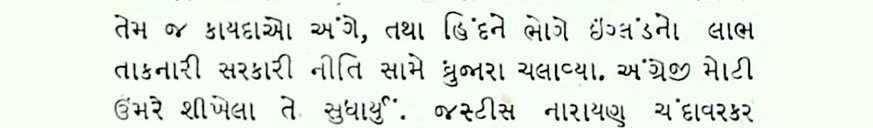 તેમ જ કાયદાઓ અંગે, તથા હિંદને ભોગે ઇંગ્લંડનો લાભ
તાકનારી સરકારી નીતિ સામે ત્રુજારા ચલાવ્યા. અંગ્રેજી મોટી
ઉંમરે શીખેલા તે સુધાર્યું. જસ્ટીસ નારાયણ ચંદાવરકર